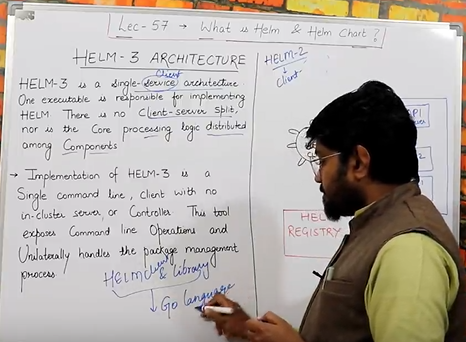 Lec-57 → What is Helm & Helm Chart?
HELM-3 ARCHITECTURE
Client
HELM-3 is a Single-Service architecture.
One executable is responsible for implementing
HELM. There is no Client-server split,
nor is the Core processing logic distributed
among Components
→ Implementation of HELM-3 is a
Single command line, client with no
in-cluster server, or Controller. This tool
exposes Command line Operations and
Unilaterally handles the package management
process.
HELM client & library
↓ Go language
HELM-2
↓
client
API
REGISTRY